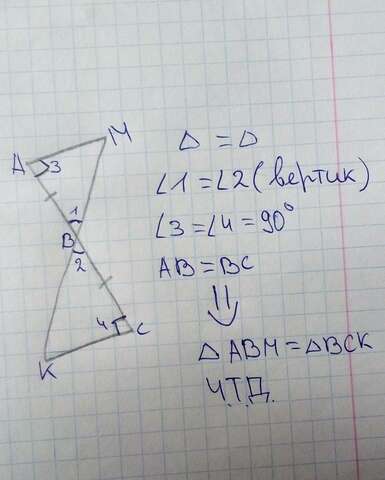 M
A
3
1
B
2
4
C
K
Δ = Δ
∠1 = ∠2 (вертик)
∠3 = ∠4 = 90°
AB = BC
⇓
Δ ABM = Δ BCK
Ч.Т.Д.